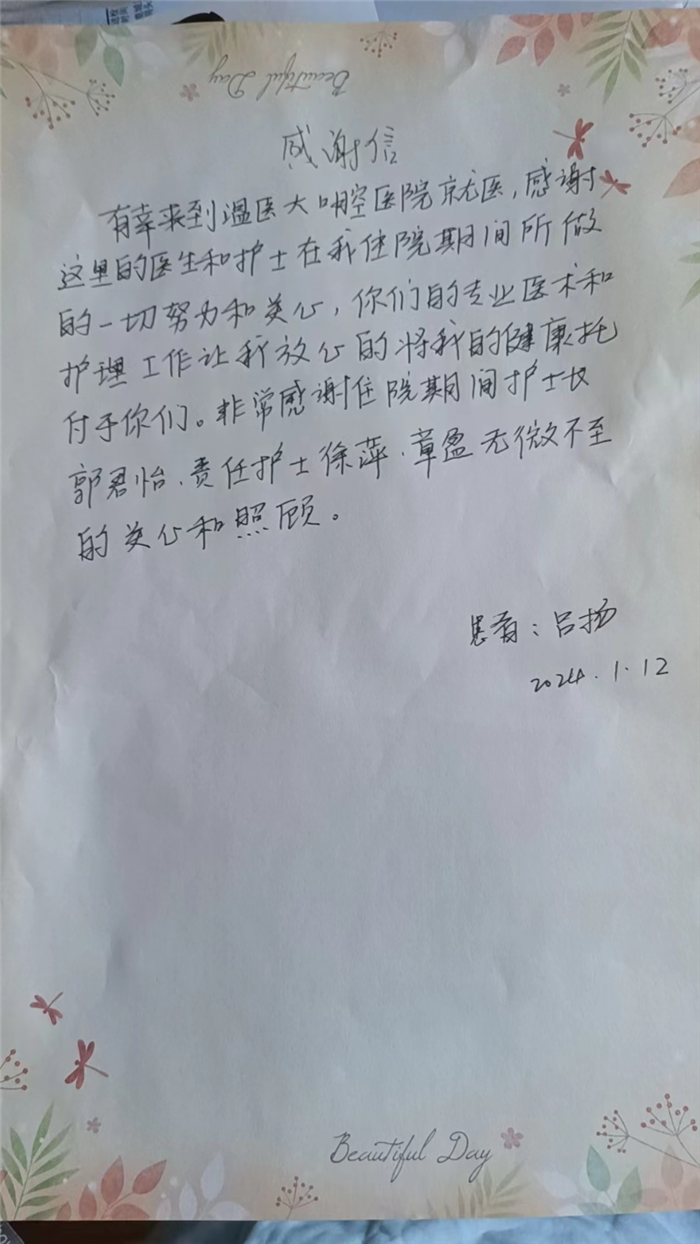 Beautiful Day
感谢信
有幸来到温医大口腔医院就医，感谢
这里的医生和护士在我住院期间所做
的一切努力和关心，你们的专业医术和
护理工作让我放心的将我的健康托
付于你们。非常感谢住院期间护士长
郭君怡、责任护士徐萍、章盈无微不至
的关心和照顾。
患者：吕扬
2024.1.12
Beautiful Day